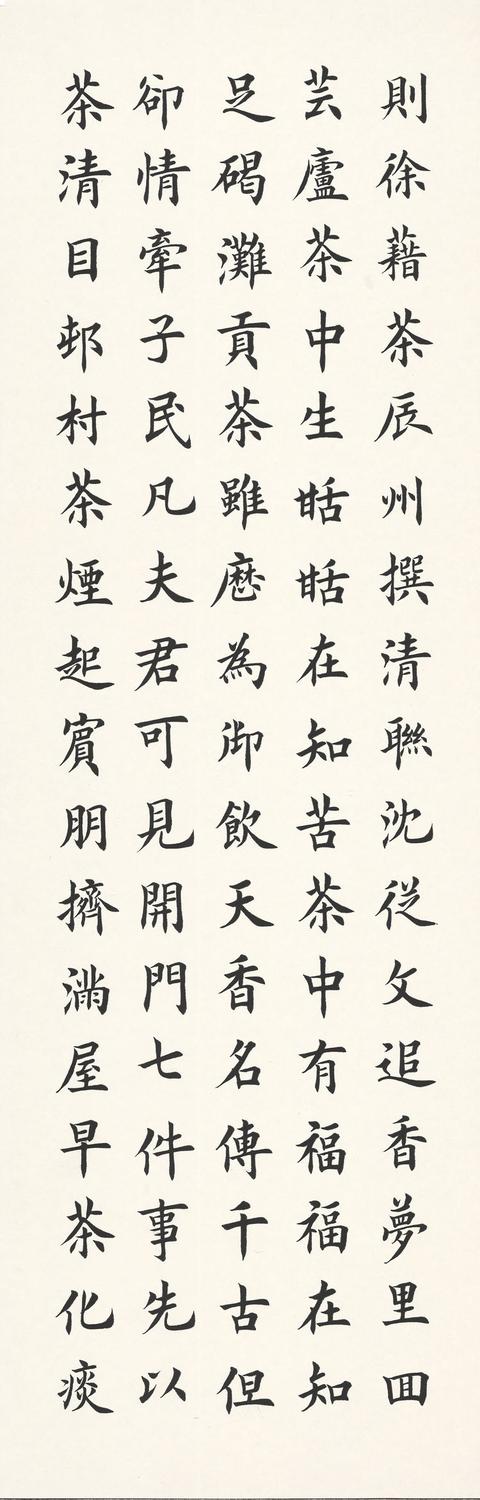 則徐藉茶辰州撰清聯沈從文追香夢里囬
芸廬茶中生甛甛在知苦茶中有福福在知
足碣灘貢茶雖歴為御飲天香名傳千古但
卻情牽子民凡夫君可見開門七件事先以
茶清目邨村茶煙起賓朋擠滿屋早茶化痰